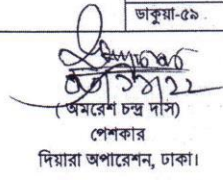 ডাকুয়া-৫৯
(অমরেশ চন্দ্র দাস)
পেশকার
দিয়ারা অপারেশন, ঢাকা।